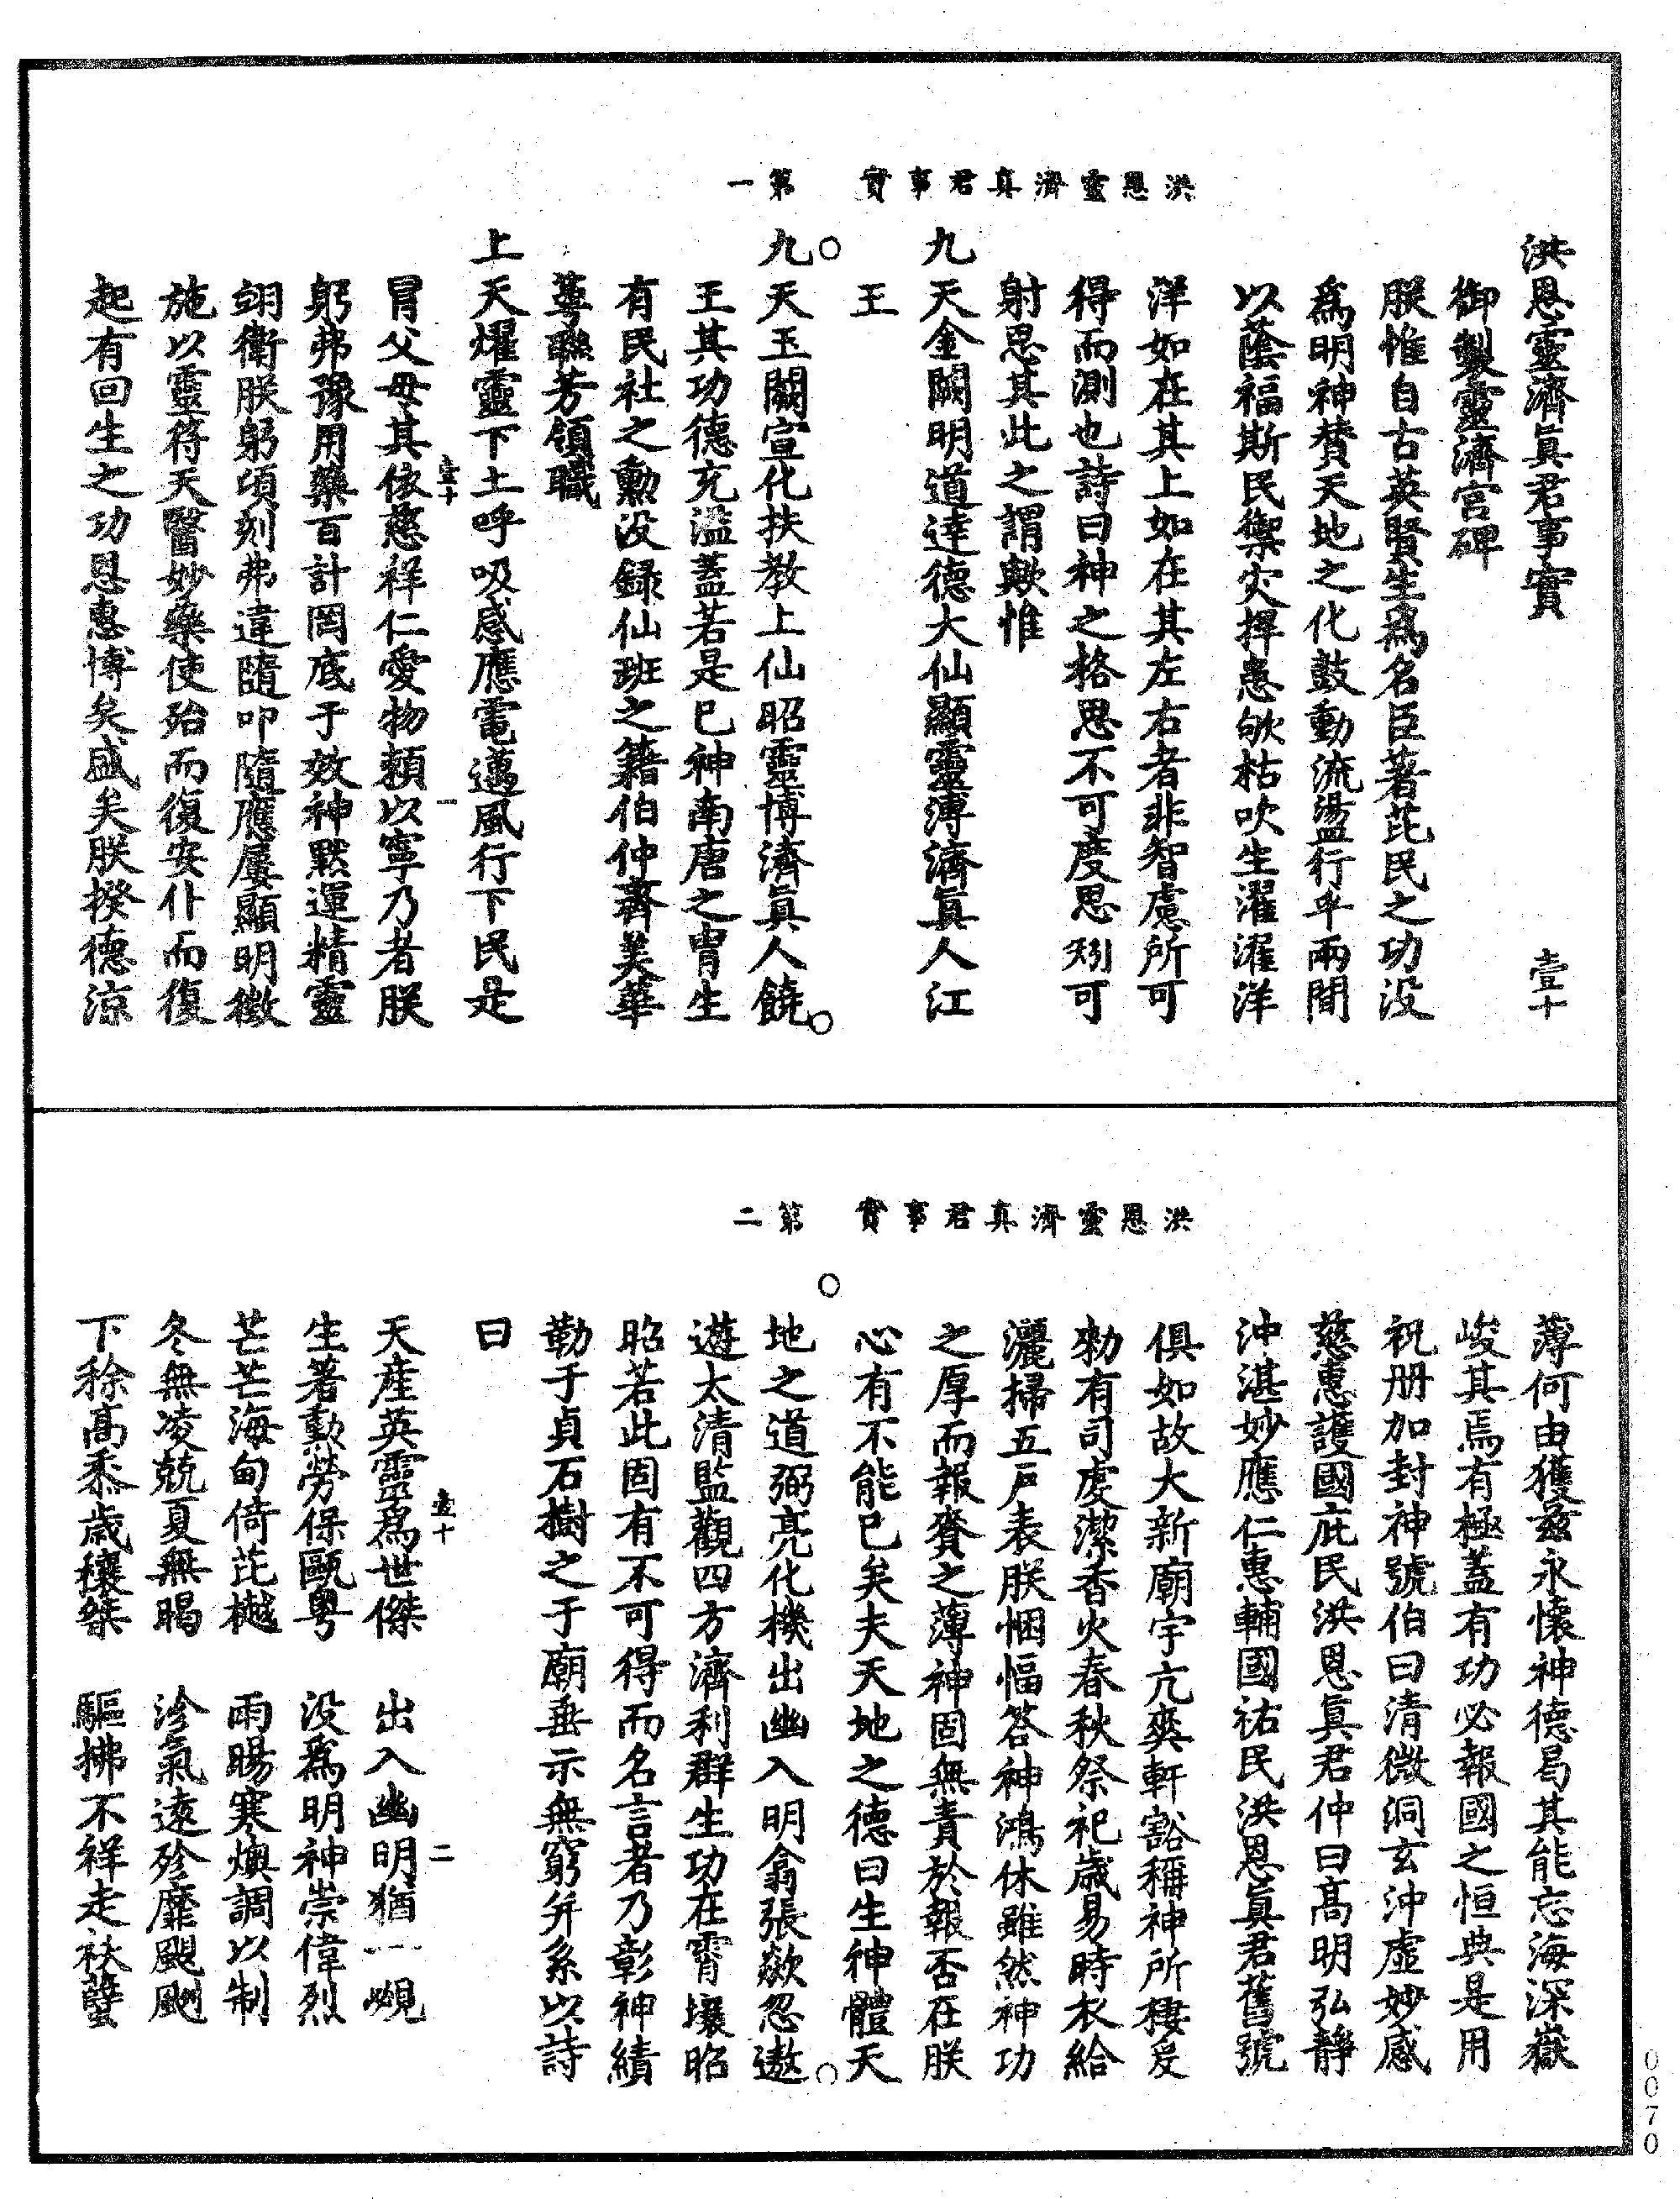 洪恩靈濟真君事實　第一
洪恩靈濟眞君事實　壹十
御製靈濟宮碑
朕惟自古英賢生爲名臣著芘民之功没
爲明神賛天地之化鼓動流盪行乎兩間
以蔭福斯民禦灾捍患噓枯吹生濯濯洋
洋如在其上如在其左右者非智慮所可
得而測也詩曰神之格思不可度思矧可
射思其此之謂歟惟
九天金闕明道達德大仙顯靈溥濟眞人江
王
九天玉闕宣化扶教上仙昭靈博濟眞人饒
王其功德充溢蓋若是已神南唐之冑生
有民社之勳没錄仙班之籍伯仲齊美華
萼聯芳領職
上天燿靈下土呼吸感應電邁風行下民是
壹十　一
冒父母其依慈祥仁愛物頼以寧乃者朕
躬弗豫用藥百計罔底于效神黙運精靈
翊衛朕躬頃刻弗違隨叩隨應屢顯明徵
施以靈符天醫妙藥使殆而復安仆而復
起有回生之功恩惠博矣盛矣朕揆德涼
洪恩靈濟真君事實　第二
薄何由獲兹永懷神德曷其能忘海深嶽
峻其焉有極蓋有功必報國之恒典是用
祝册加封神號伯曰清微洞玄沖虛妙感
慈惠護國庇民洪恩眞君仲曰高明弘靜
沖湛妙應仁惠輔國祐民洪恩眞君舊號
俱如故大新廟宇亢爽軒豁稱神所棲爰
勑有司虔潔香火春秋祭祀歲易時衣給
灑掃五戶表朕悃愊答神鴻休雖然神功
之厚而報賚之薄神固無責於報否在朕
心有不能已矣夫天地之德曰生神體天
地之道弼亮化機出幽入明翕張歘忽遨
遊太清監觀四方濟利群生功在霄壤昭
昭若此固有不可得而名言者乃彰神績
勒于貞石樹之于廟垂示無窮并系以詩
曰
壹十　二
天產英靈爲世傑　出入幽明猶一覕
生著勳勞保甌粤　没爲明神崇偉烈
芒芒海甸倚芘樾　雨暘寒燠調以制
冬無凌兢夏無暍　沴氣遠殄靡颶颲
下稌高黍歲穰傑　驅拂不祥走祅蠥
0070